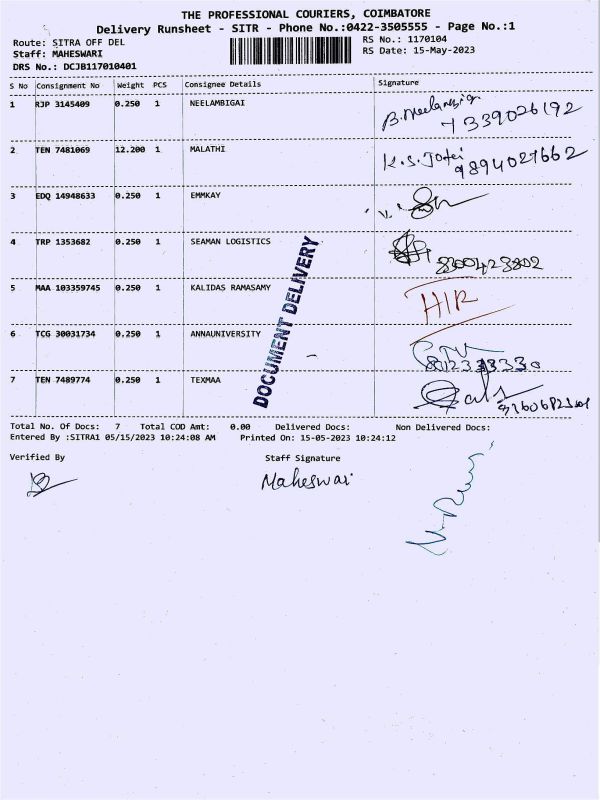 THE PROFESSIONAL COURIERS, COIMBATORE
Delivery Runsheet - SITR - Phone No.:0422-3505555 - Page No.:1
Route: SITRA OFF DEL
RS No.: 1170104
Staff: MAHESWARI
RS Date: 15-May-2023
DRS No.: DCJB117010401
S No Consignment No Weight PCS Consignee Details Signature
1 RJP 3145409 0.250 1 NEELAMBIGAI B.Neelambiga
7339026192
2 TEN 7481069 12.200 1 MALATHI K.S.Jothi
9894027662
3 EDQ 14948633 0.250 1 EMMKAY
4 TRP 1353682 0.250 1 SEAMAN LOGISTICS
8300423802
5 MAA 103359745 0.250 1 KALIDAS RAMASAMY HIR
6 TCG 30031734 0.250 1 ANNAUNIVERSITY
7 TEN 7489774 0.250 1 TEXMAA
DOCUMENT DELIVERY
Total No. Of Docs: 7 Total COD Amt: 0.00 Delivered Docs: Non Delivered Docs:
Entered By :SITRA1 05/15/2023 10:24:08 AM Printed On: 15-05-2023 10:24:12
Verified By Staff Signature
Maheswari